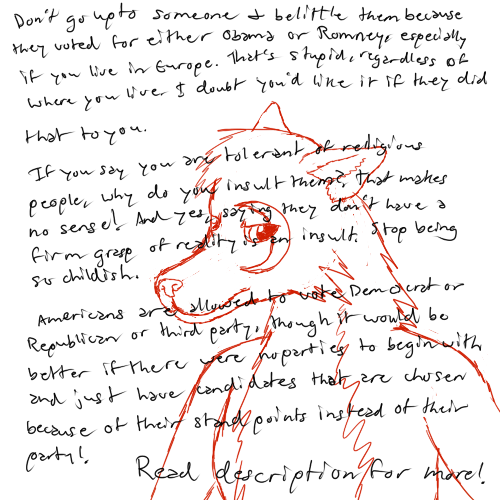 Don't go up to someone & belittle them because
they voted for either Obama or Romney, especially
if you live in Europe. That's stupid, regardless of
where you live. I doubt you'd like it if they did
that to you.
If you say you are tolerant of religious
people, why do you insult them? That makes
no sense! And yes, saying they don't have a
firm grasp of reality is an insult. Stop being
so childish.
Americans are allowed to vote Democrat or
Republican or third party, though it would be
better if there were no parties to begin with
and just have candidates that are chosen
because of their stand points instead of their
party!
Read description for more!